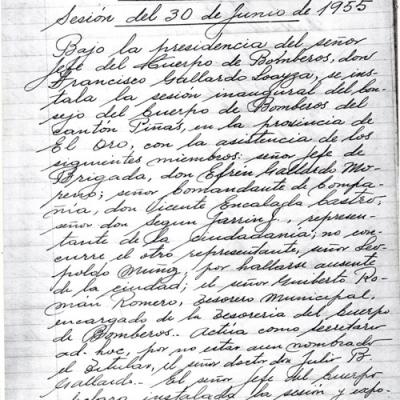 Sesión del 30 de Junio de 1955
Bajo la presidencia del señor
Jefe del Cuerpo de Bomberos, don
Francisco Gallardo Loayza, se ins-
tala la sesión inaugural del Con-
sejo del Cuerpo de Bomberos del
Cantón Piñas, en la provincia de
El Oro, con la asistencia de los
siguientes miembros: señor Jefe de
Brigada, don Efrén Gallardo Mo-
reno; señor Comandante de Compa-
ñía, don Vicente Encalada Castro;
señor don Segun Jarrín J., represen-
tante de la ciudadanía; no con-
curre el otro representante, señor Leo-
poldo Muñoz, por hallarse ausente
de la ciudad; el señor Gniberto Ro-
mán Romero, Tesorero Municipal,
encargado de la Tesorería del Cuerpo
de Bomberos.. Actúa como Secretario
ad-hoc, por no estar aun nombrado
el titular, el señor doctor don Julio B.
Gallardo.- El señor Jefe del Cuerpo
instalada la sesión y expo-